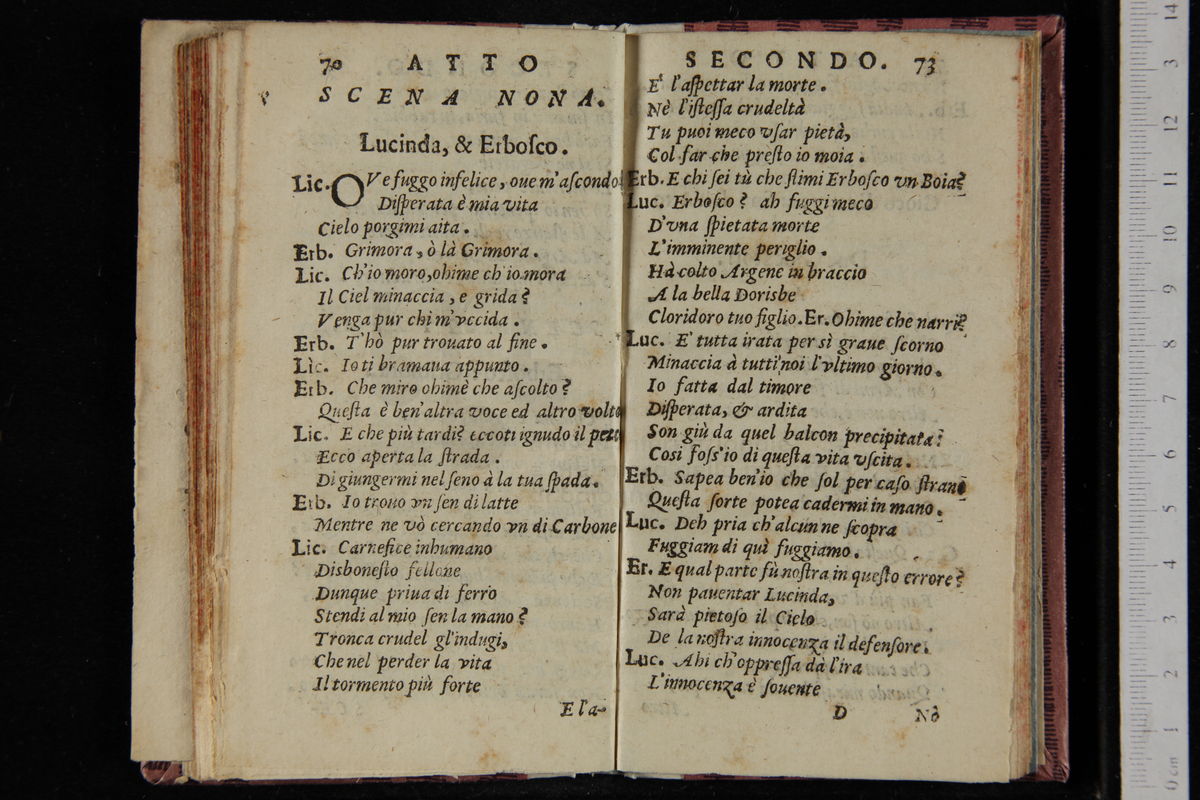 70 ATTO
SCENA NONA.
Lucinda, & Erbosco.
Lic. OVe fuggo infelice, oue m'ascondo!
Disperata è mia vita
Cielo porgimi aita.
Erb. Grimora, ò là Grimora.
Lic. Ch'io moro, ohime ch'io mora
Il Ciel minaccia, e grida?
Venga pur chi m'vccida.
Erb. T'hò pur trouato al fine.
Lic. Io ti bramaua appunto.
Erb. Che miro ohimè che ascolto?
Questa è ben'altra voce ed altro volto
Lic. E che più tardi? eccoti ignudo il
Ecco aperta la strada.
Di giungermi nel seno à la tua spada.
Erb. Io trouo vn sen di latte
Mentre ne vò cercando vn di Carbone
Lic. Carnefice inhumano
Disbonesto fellone
Dunque priua di ferro
Stendi al mio sen la mano?
Tronca crudel gl'indugi,
Che nel perder la vita
Il tormento più forte
E l'a-
SECONDO. 73
E' l'aspettar la morte.
Nè l'istessa crudeltà
Tu puoi meco vsar pietà,
Col far che presto io moia.
Erb. E chi sei tù che stimi Erbosco vn Boia?
Luc. Erbosco? ah fuggi meco
D'vna spietata morte
L'imminente periglio.
Hà colto Argene in braccio
A la bella Dorisbe
Cloridoro tuo figlio. Er. Ohime che narri?
Luc. E' tutta irata per sì graue scorno
Minaccia à tutti noi l'vltimo giorno.
Io fatta dal timore
Disperata, & ardita
Son giù da quel balcon precipitata:
Così foss'io di questa vita vscita.
Erb. Sapea ben'io che sol per caso strano
Questa sorte potea cadermi in mano.
Luc. Deh pria ch'alcun ne scopra
Fuggiam di quì fuggiamo.
Er. E qual parte fù nostra in questo errore?
Non pauentar Lucinda,
Sarà pietoso il Cielo
De la nostra innocenza il defensore.
Luc. Ahi ch'oppressa dà l'ira
L'innocenza è souente
D Nò